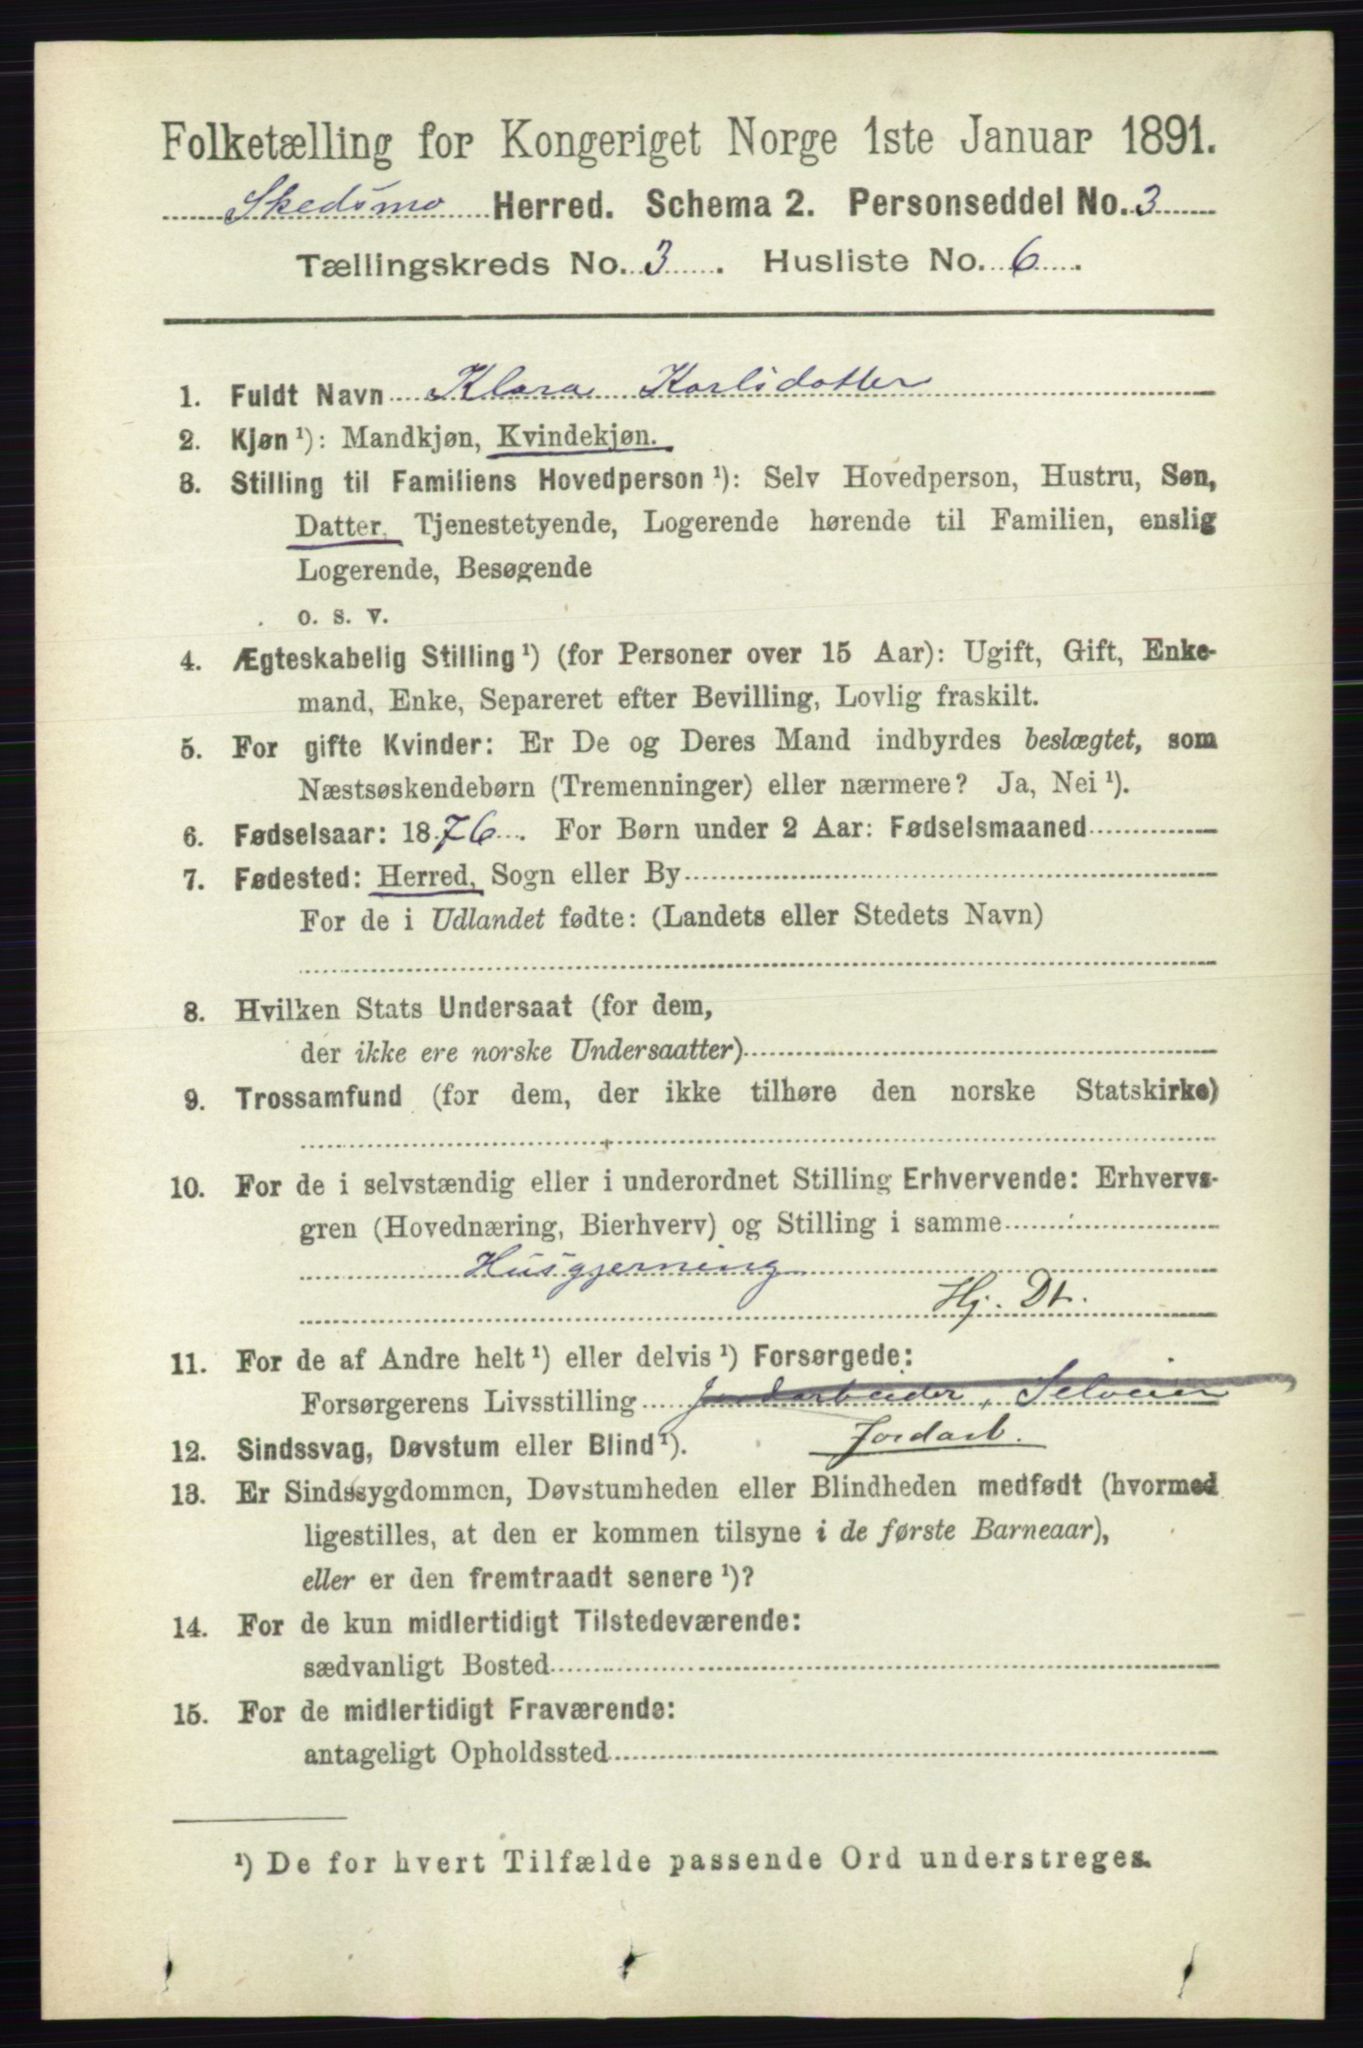 Folketælling for Kongeriget Norge 1ste Januar 1891.
Skedsmo Herred. Schema 2. Personseddel No. 3
Tællingskreds No. 3. Husliste No. 6.
1. Fuldt Navn Klara Karlsdatter
2. Kjøn ¹): Mandkjøn, Kvindekjøn.
3. Stilling til Familiens Hovedperson ¹): Selv Hovedperson, Hustru, Søn,
Datter, Tjenestetyende, Logerende hørende til Familien, enslig
Logerende, Besøgende
o. s. v.
4. Ægteskabelig Stilling ¹) (for Personer over 15 Aar): Ugift, Gift, Enke-
mand, Enke, Separeret efter Bevilling, Lovlig fraskilt.
5. For gifte Kvinder: Er De og Deres Mand indbyrdes beslægtet, som
Næstsøskendebørn (Tremenninger) eller nærmere? Ja, Nei ¹).
6. Fødselsaar: 1876. For Børn under 2 Aar: Fødselsmaaned
7. Fødested: Herred, Sogn eller By
For de i Udlandet fødte: (Landets eller Stedets Navn)
8. Hvilken Stats Undersaat (for dem,
der ikke ere norske Undersaatter)
9. Trossamfund (for dem, der ikke tilhøre den norske Statskirke)
10. For de i selvstændig eller i underordnet Stilling Erhvervende: Erhvervs-
gren (Hovednæring, Bierhverv) og Stilling i samme
Husgjerning
Hj. Dt.
11. For de af Andre helt ¹) eller delvis ¹) Forsørgede:
Forsørgerens Livsstilling Jordarbeider, Selveier
Jordarb.
12. Sindssvag, Døvstum eller Blind ¹).
13. Er Sindssygdommen, Døvstumheden eller Blindheden medfødt (hvormed
ligestilles, at den er kommen tilsyne i de første Barneaar),
eller er den fremtraadt senere ¹)?
14. For de kun midlertidigt Tilstedeværende:
sædvanligt Bosted
15. For de midlertidigt Fraværende:
antageligt Opholdssted
¹) De for hvert Tilfælde passende Ord understreges.